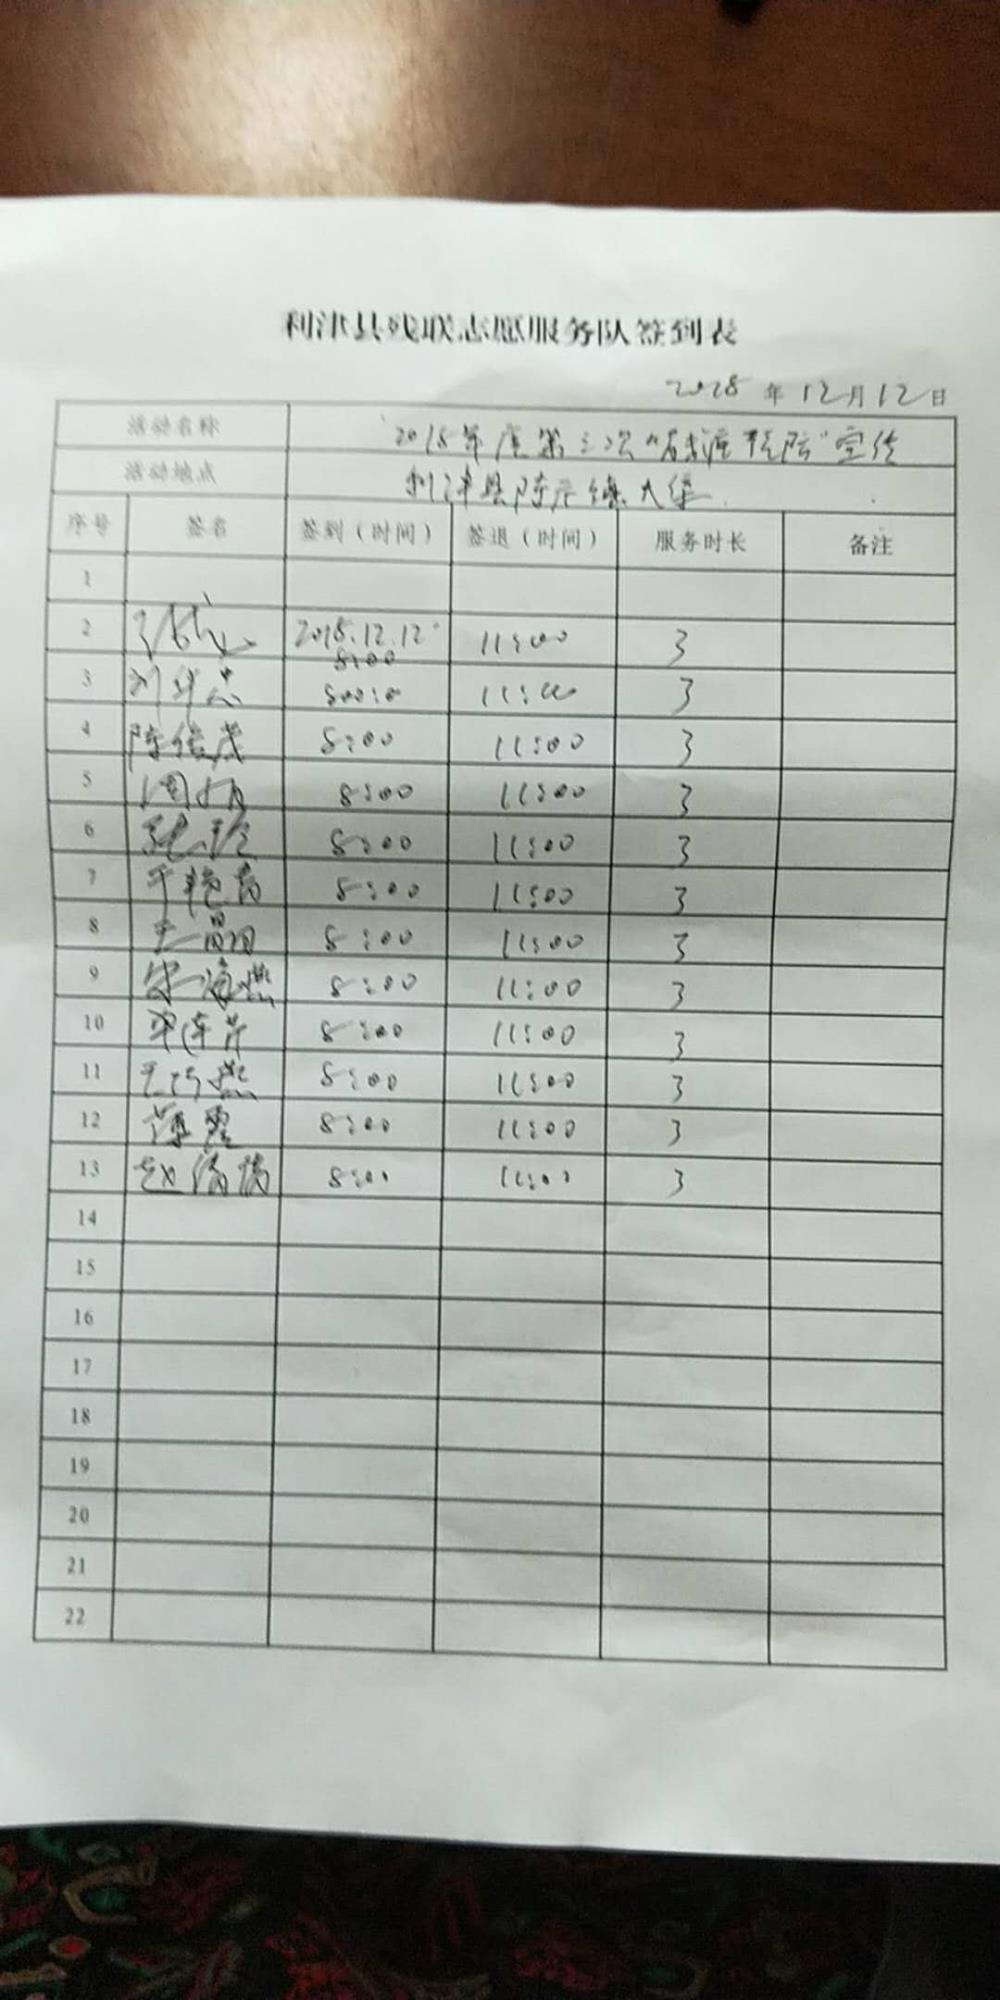 利津县残联志愿服务队签到表
2018 年 12月12日
活动名称 2018年度第三次"残疾预防"宣传
活动地点 利津县陈庄镇大集
序号 签名 签到（时间） 签退（时间） 服务时长 备注
1
2 2018.12.12 8:00 11:00 3
3 11:00 3
4 陈俊茂 8:00 11:00 3
5 周 8:00 11:00 3
6 张玲 8:00 11:00 3
7 于艳芳 8:00 11:00 3
8 王晶 8:00 11:00 3
9 宋海燕 8:00 11:00 3
10 8:00 11:00 3
11 王巧燕 8:00 11:00 3
12 薄霞 8:00 11:00 3
13 赵 8:00 11:00 3
14
15
16
17
18
19
20
21
22